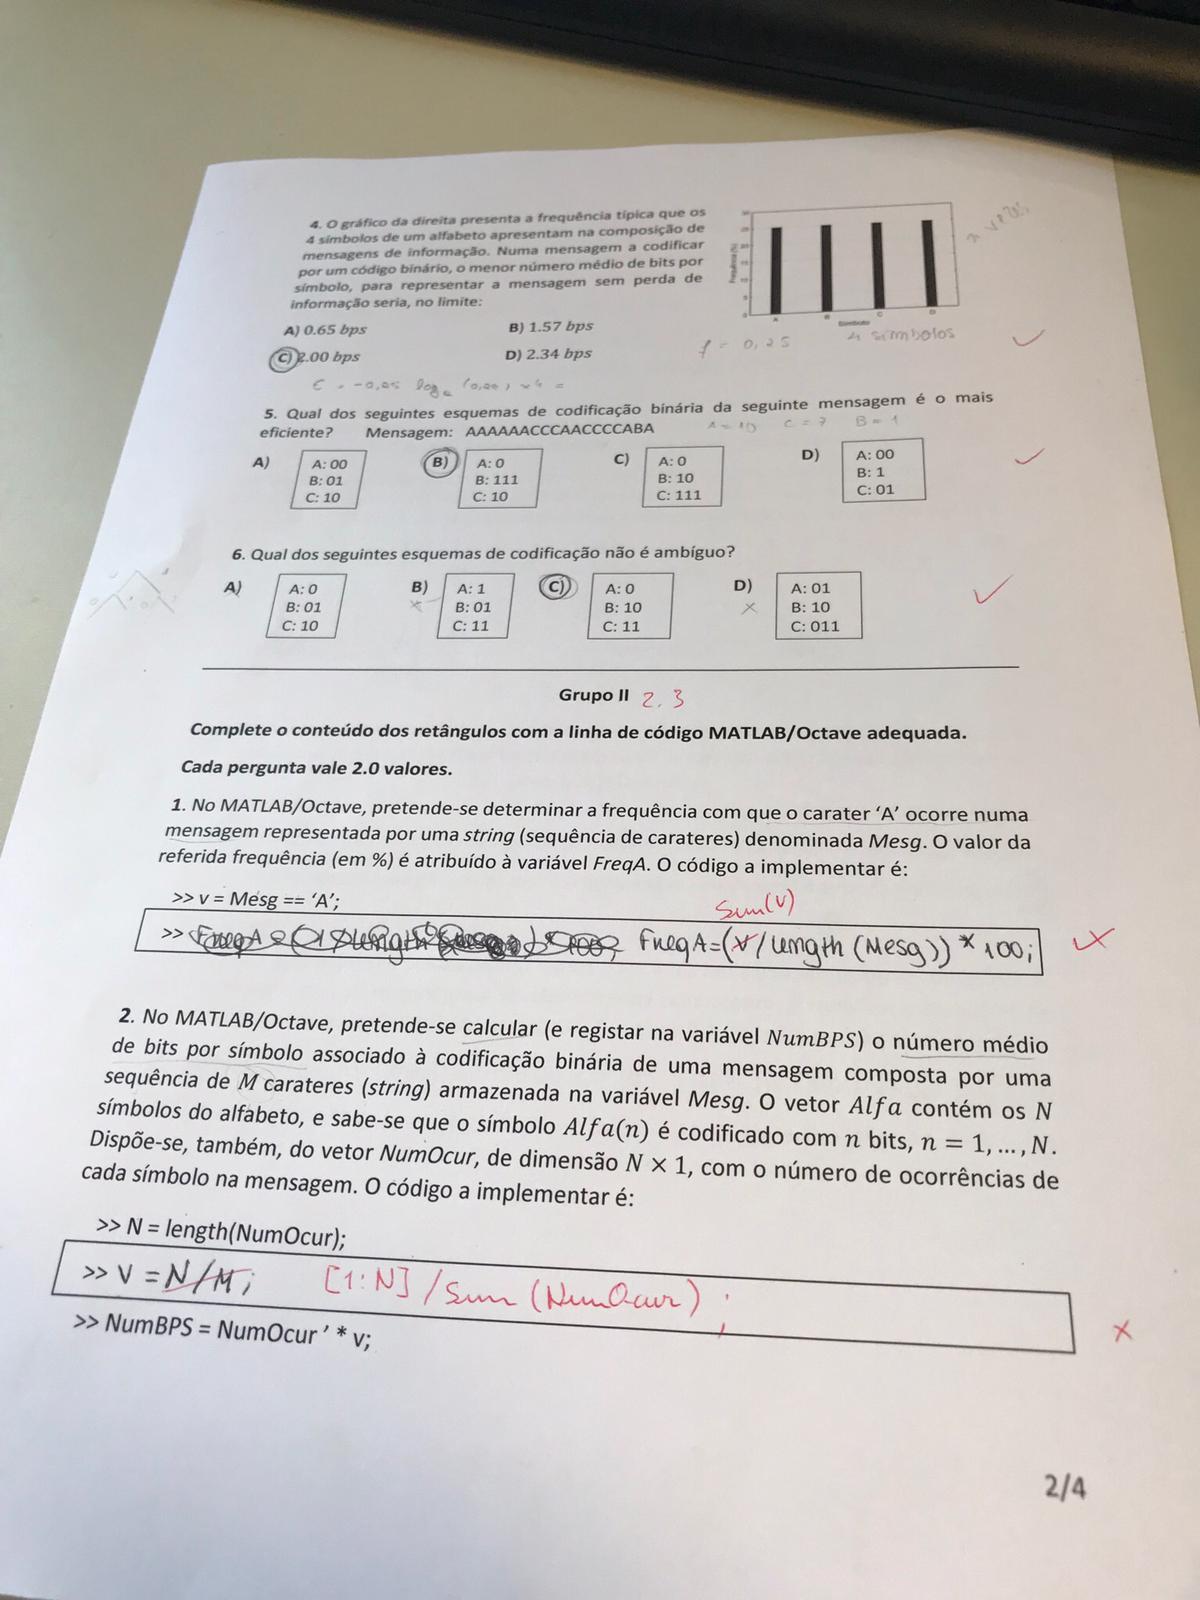 4. O gráfico da direita presenta a frequência típica que os
4 símbolos de um alfabeto apresentam na composição de
mensagens de informação. Numa mensagem a codificar
por um código binário, o menor número médio de bits por
símbolo, para representar a mensagem sem perda de
informação seria, no limite:
Frequência (%)
A B C D
Símbolo
A) 0.65 bps B) 1.57 bps
C) 2.00 bps D) 2.34 bps
f = 0,25 4 símbolos
5. Qual dos seguintes esquemas de codificação binária da seguinte mensagem é o mais
eficiente? Mensagem: AAAAAACCCAACCCCABA
A = 10 C = 7 B = 1
A) B) C) D)
A: 00 A: 0 A: 0 A: 00
B: 01 B: 111 B: 10 B: 1
C: 10 C: 10 C: 111 C: 01
6. Qual dos seguintes esquemas de codificação não é ambíguo?
A) B) C) D)
A: 0 A: 1 A: 0 A: 01
B: 01 B: 01 B: 10 B: 10
C: 10 C: 11 C: 11 C: 011
Grupo II 2.3
Complete o conteúdo dos retângulos com a linha de código MATLAB/Octave adequada.
Cada pergunta vale 2.0 valores.
1. No MATLAB/Octave, pretende-se determinar a frequência com que o carater ‘A’ ocorre numa
mensagem representada por uma string (sequência de carateres) denominada Mesg. O valor da
referida frequência (em %) é atribuído à variável FreqA. O código a implementar é:
>> v = Mesg == ‘A’;
Sum(v)
>> FreqA=(v/length(Mesg))*100;
2. No MATLAB/Octave, pretende-se calcular (e registar na variável NumBPS) o número médio
de bits por símbolo associado à codificação binária de uma mensagem composta por uma
sequência de M carateres (string) armazenada na variável Mesg. O vetor Alfa contém os N
símbolos do alfabeto, e sabe-se que o símbolo Alfa(n) é codificado com n bits, n = 1, ..., N.
Dispõe-se, também, do vetor NumOcur, de dimensão N × 1, com o número de ocorrências de
cada símbolo na mensagem. O código a implementar é:
>> N = length(NumOcur);
>> V = N/M; [1:N]/Sum(NumOcur);
>> NumBPS = NumOcur ’ * v;
2/4